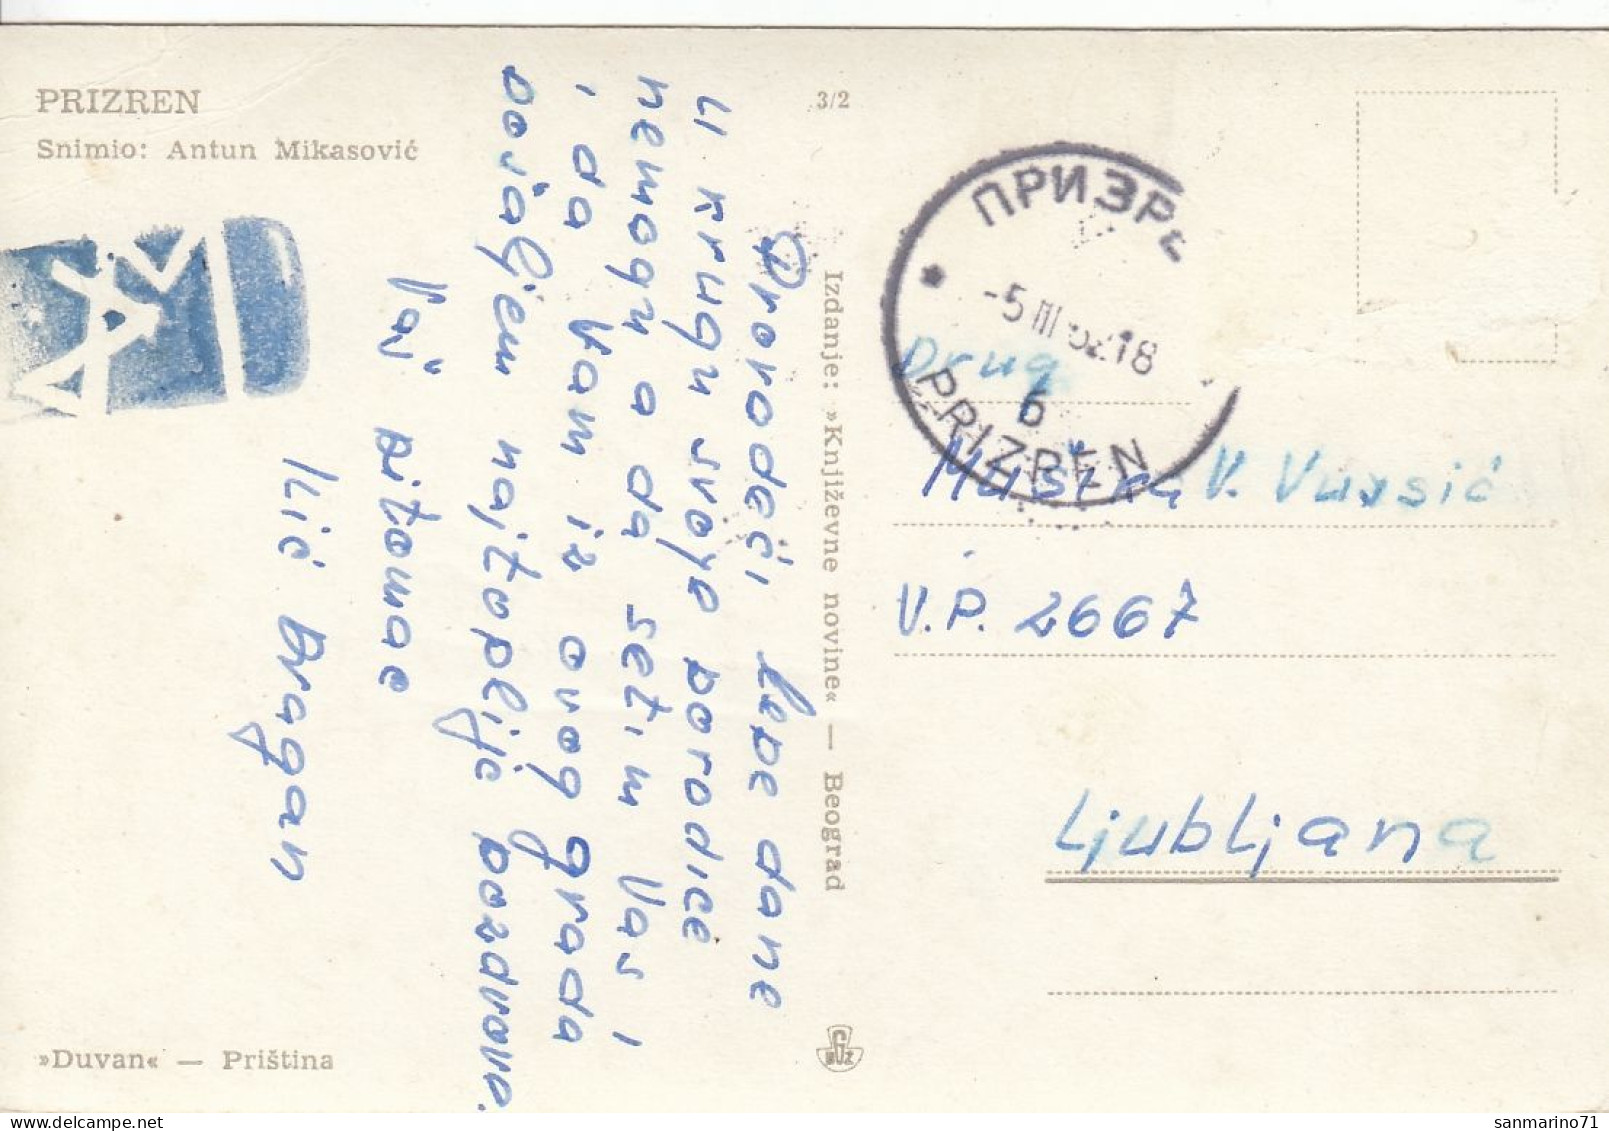 PRIZREN
Snimio: Antun Mikasović
3/2
Provodeći lepe dane
u krugu svoje porodice
nemogu a da setim Vas i
i da Vam iz ovog grada
pošaljem najtoplije pozdrave.
Vaš pitomac
Ilić Dragan
»Duvan« — Priština
Izdanje: »Književne novine« — Beograd
ПРИЗРЕ
-5 III 62 18
6
PRIZREN
Drug
V.
V.P. 2667
Ljubljana
sanmarino71